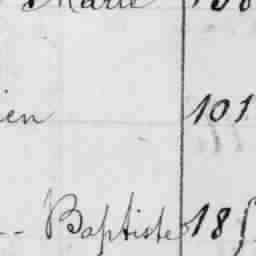 Marie
ien 101
-- Baptiste 18